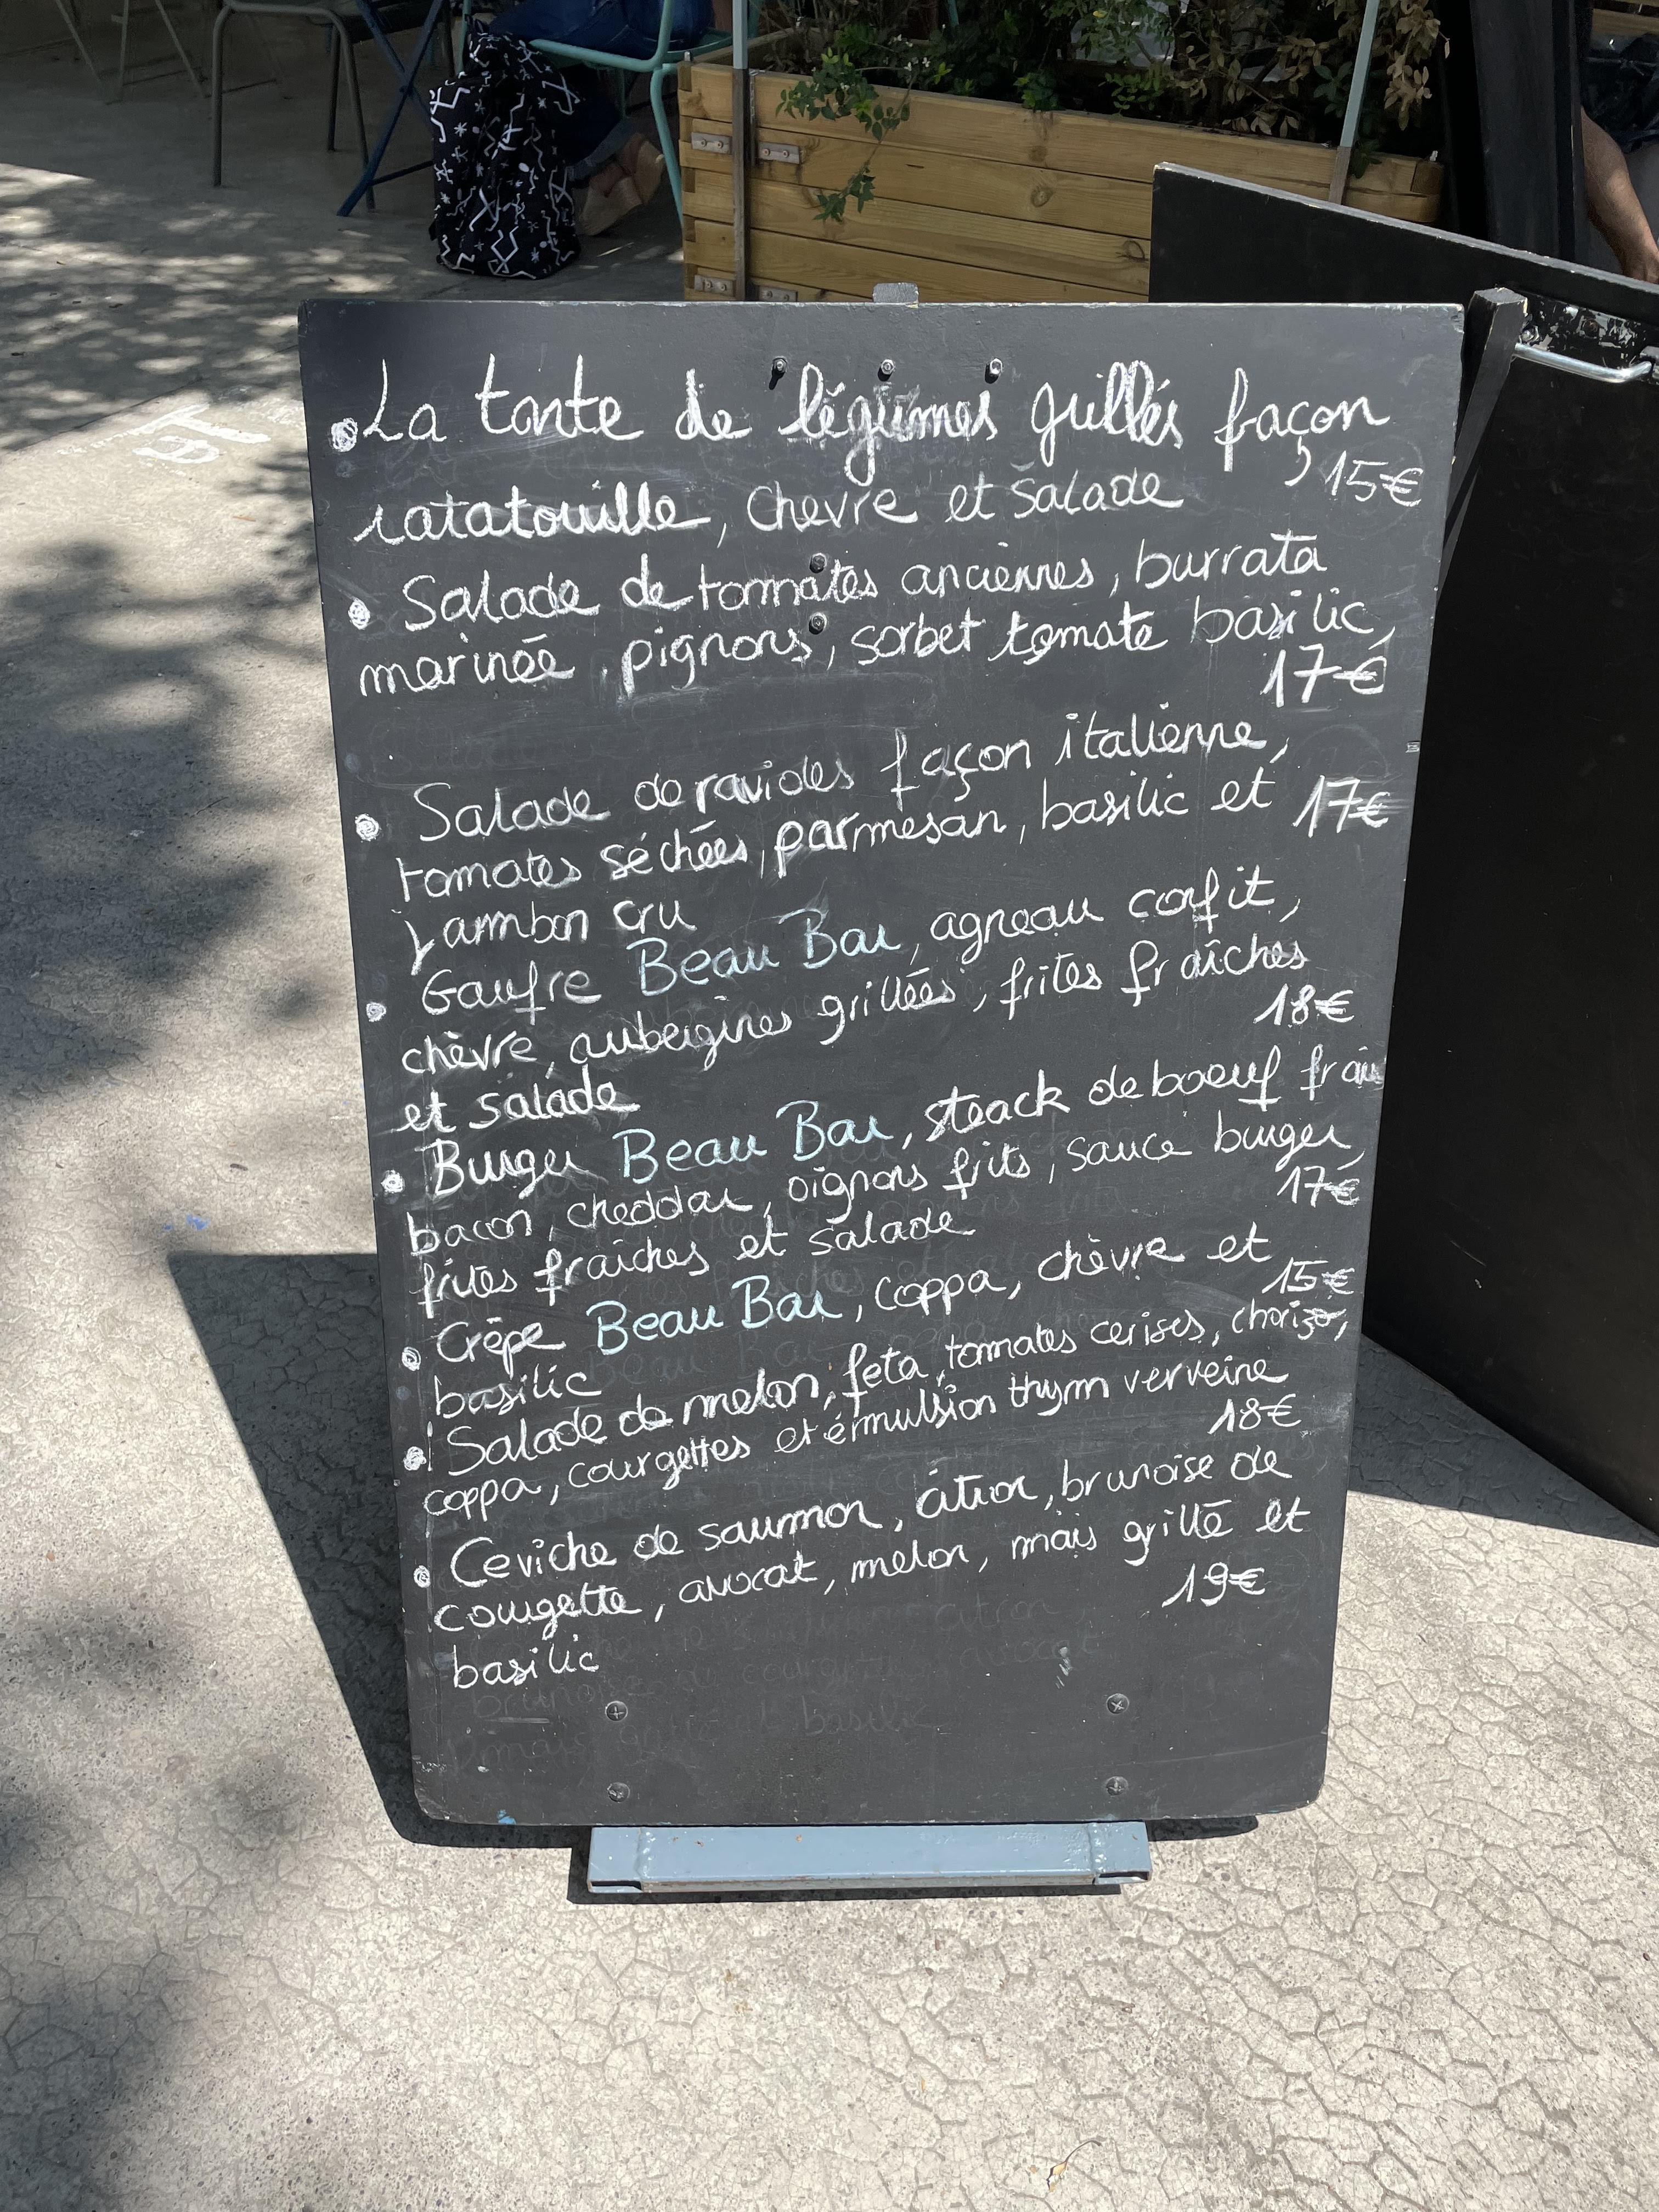 La tarte de légumes grillés façon
ratatouille, chevre et salade 15€
Salade de tommates anciennes, burrata
marinée, pignons, sorbet tomate basilic,
17€
Salade de ravioles façon italienne,
tomates séchées, parmesan, basilic et 17€
jambon cru
Gaufre Beau Bar, agneau confit,
chèvre, aubergines grillées, frites fraîches
18€
et salade
Burger Beau Bar, steack de boeuf frais
bacon, cheddar, oignons frits, sauce burger,
17€
frites fraîches et salade
Crêpe Beau Bar, coppa, chèvre et
15€
basilic
Salade de melon, feta, tomates cerises, chorizo,
coppa, courgettes et émulsion thym verveine
18€
Ceviche de saumon, citron, brunoise de
courgette, avocat, melon, maïs grillé et
19€
basilic